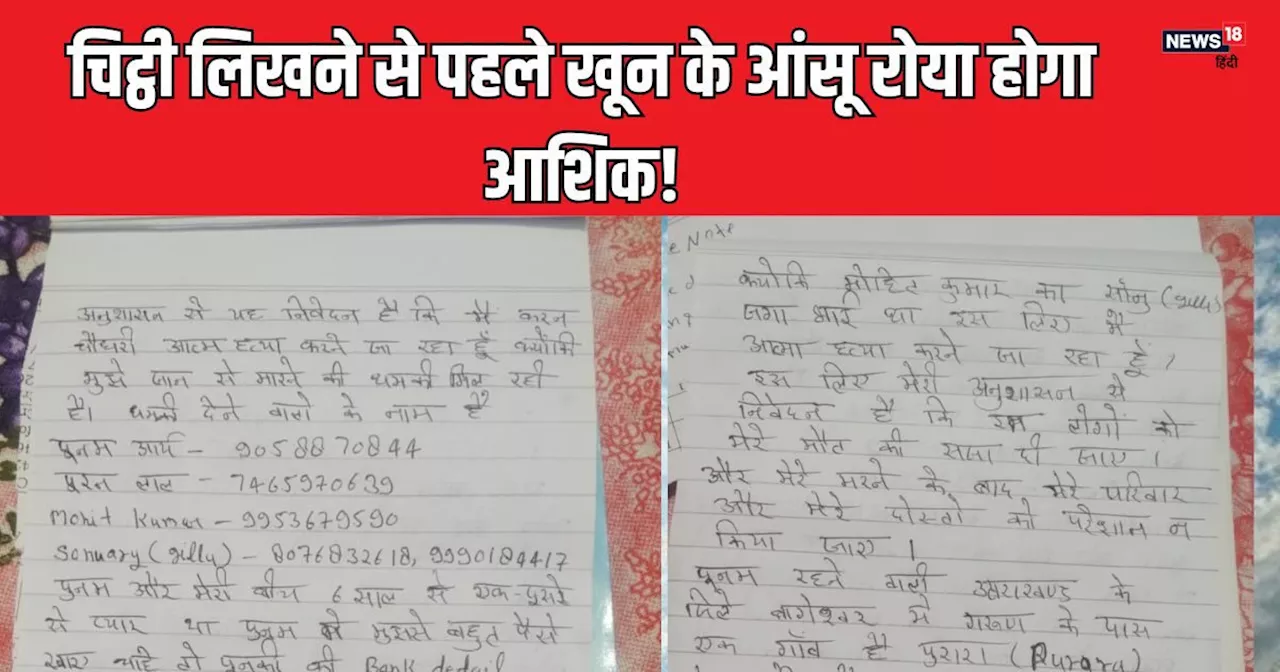 चिट्ठी लिखने से पहले खून के आंसू रोया होगा
आशिक!
NEWS 18
हिंदी
अनुशासन से यह निवेदन है कि मैं करन
चौधरी आत्म हत्या करने जा रहा हूँ क्योंकि
मुझे जान से मारने की धमकी मिल रही
है। धमकी देने वालो के नाम है
पूनम आर्य - 9058870844
पूरन लाल - 7465970639
Mohit Kumar - 9953679590
Sonuary (gilly) - 8076832618, 9990184417
पुनम और मेरी बीच 6 साल से एक-दुसरे
से प्यार था पुनम ने मुझसे बहुत पैसे
खाए चाहे तो पुनकी की Bank detail
e Note
क्योकि मोहित कुमार का सोनु (gilly)
जगा भाई था इस लिए मैं
आत्मा हत्या करने जा रहा हूँ।
इस लिए मेरी अनुशासन से
निवेदन है कि इन लोगों को
मेरे मौत की सजा दी जाए।
और मेरे मरने के बाद मेरे परिवार
और मेरे दोस्तो को परेशान न
किया जाए।
पूनम रहने वाली उत्तराखण्ड के
जिले बागेश्वर मे गरूण के पास
एक गाँव है पुरारा (Purara)